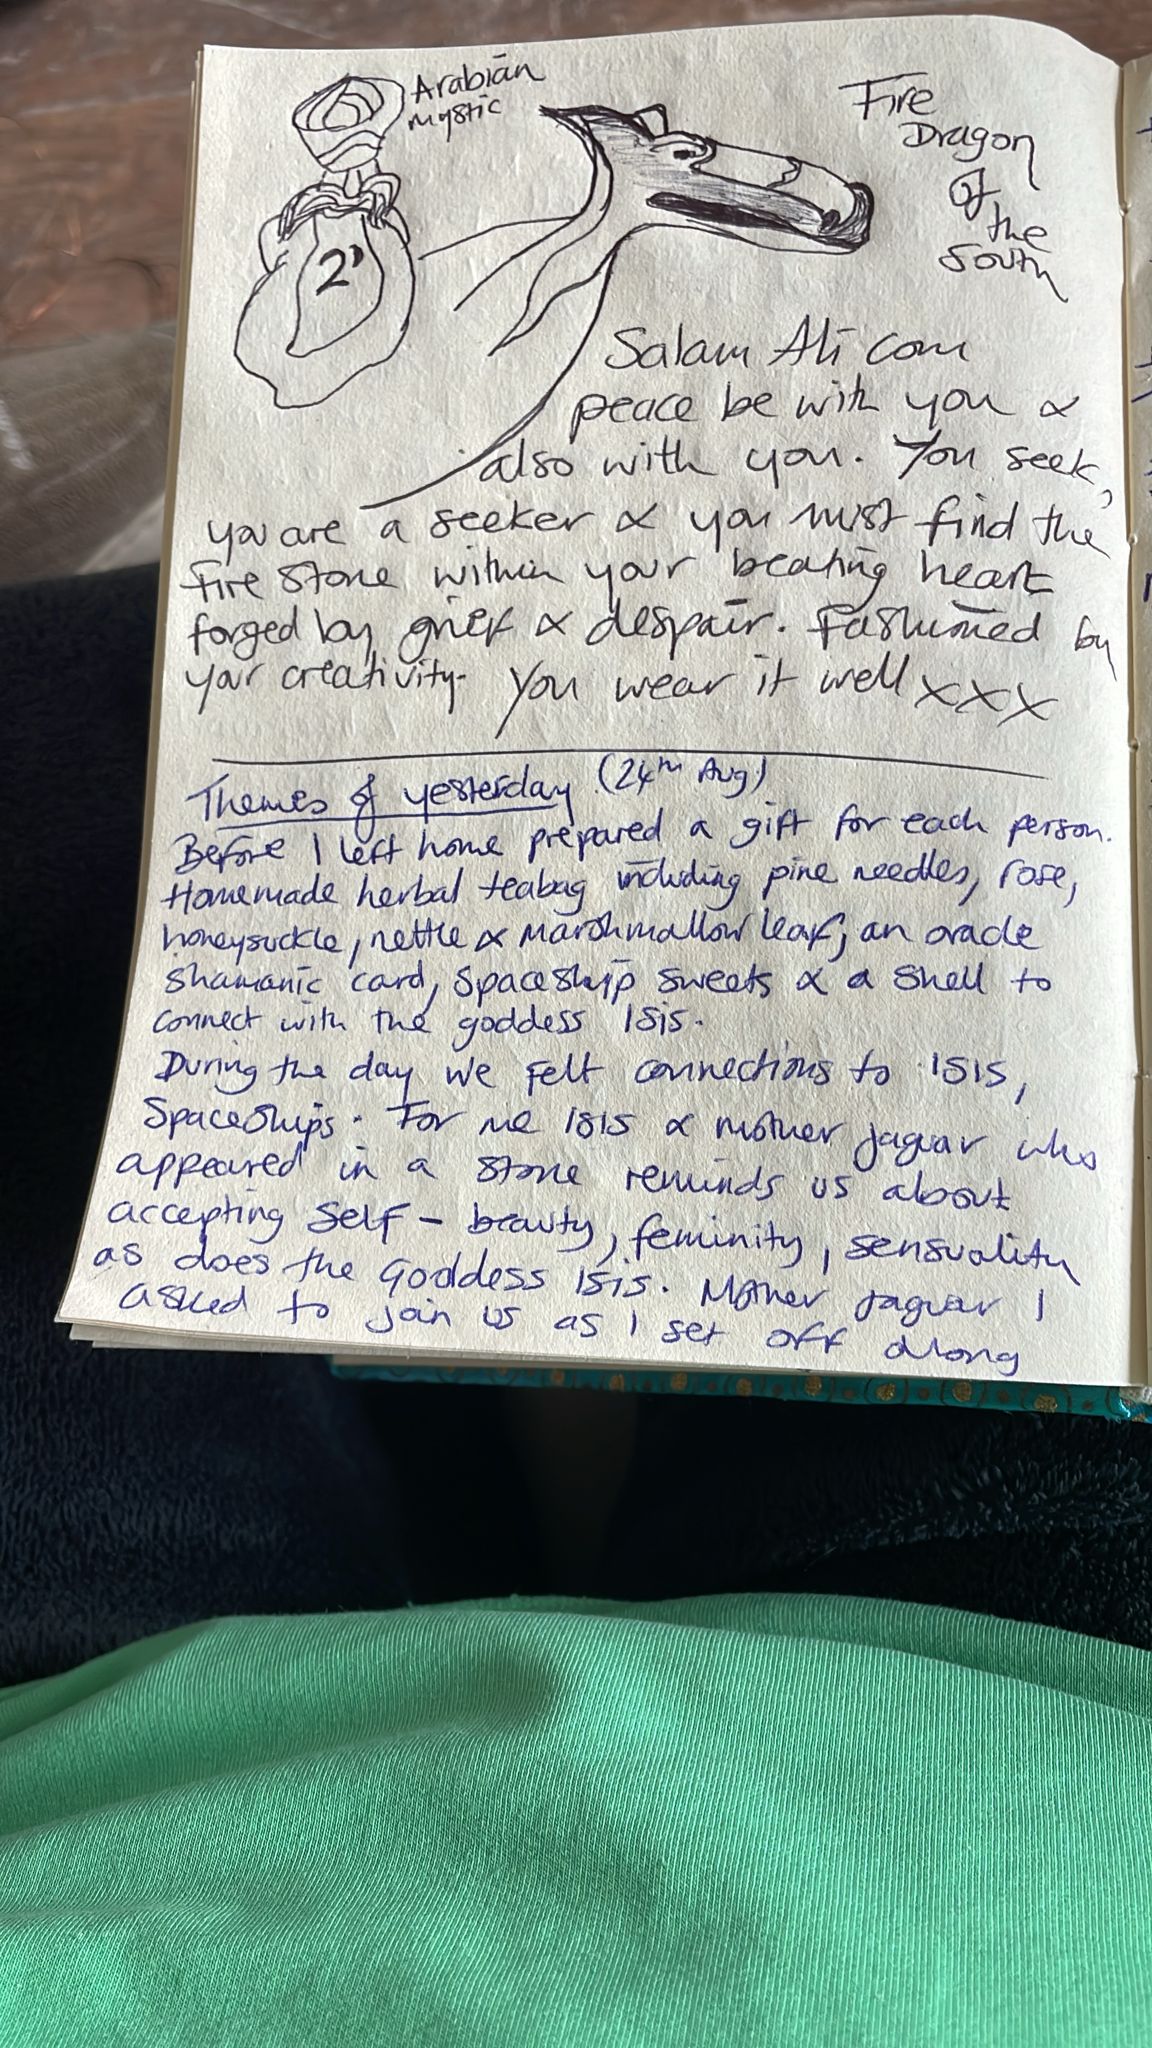 Arabian
mystic
Fire
Dragon
of
the
South
2'
Salam Ali com
peace be with you &
also with you. You seek,
you are a seeker & you must find the
fire stone within your beating heart
forged by grief & despair. Fashioned by
your creativity. You wear it well xxx
Themes of yesterday (24th Aug)
Before I left home prepared a gift for each person.
Homemade herbal teabag including pine needles, rose,
honeysuckle, nettle & marshmallow leaf, an oracle
shamanic card, spaceship sweets & a shell to
connect with the goddess Isis.
During the day we felt connections to ISIS,
Spaceships. For me ISIS & mother jaguar who
appeared in a stone reminds us about
accepting self - beauty, feminity, sensuality
as does the Goddess Isis. Mother jaguar I
asked to join us as I set off along